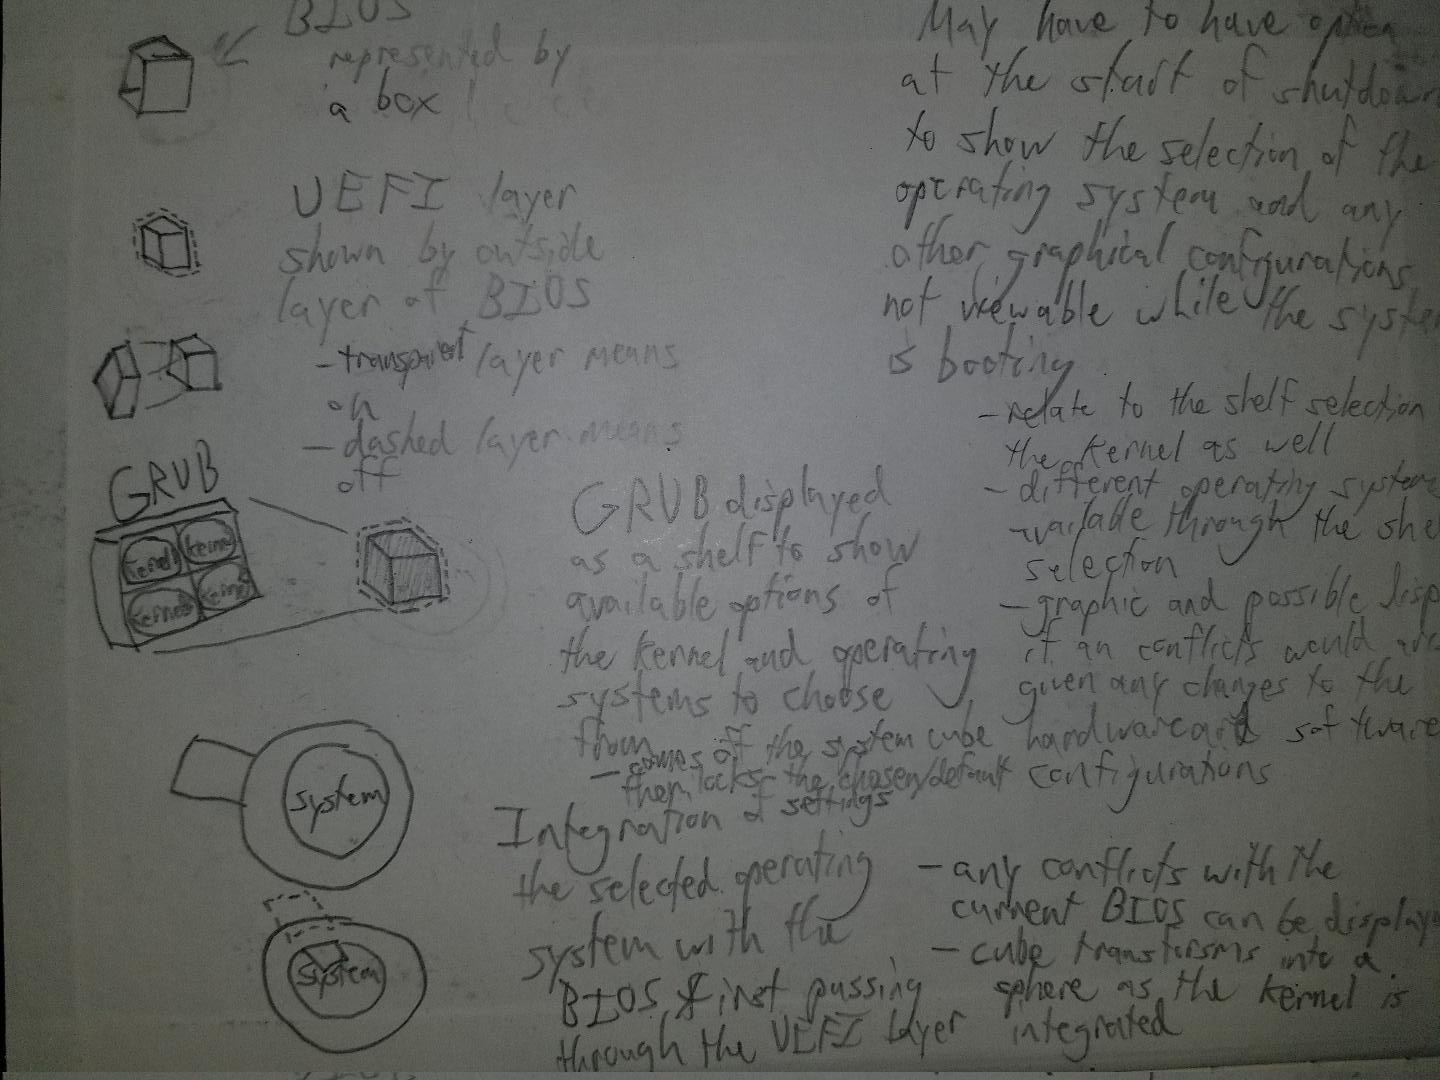 BIOS
represented by
a box
UEFI layer
shown by outside
layer of BIOS
- transparent layer means
on
- dashed layer means
off
GRUB
kernel kernel
kernel kernel
GRUB displayed
as a shelf to show
available options of
the kernel and operating
systems to choose
from
- comes off the system cube
then locks the chosen/default
settings
system
system
Integration of
the selected operating
system with the
BIOS first passing
through the UEFI layer
May have to have option
at the start of shutdown
to show the selection of the
operating system and any
other graphical configurations
not viewable while the system
is booting
- relate to the shelf selection
the kernel as well
- different operating system
available through the shel
selection
- graphic and possible disp
if an conflicts would
given any changes to the
hardware and software
configurations
- any conflicts with the
current BIOS can be display
- cube transforms into a
sphere as the kernel is
integrated